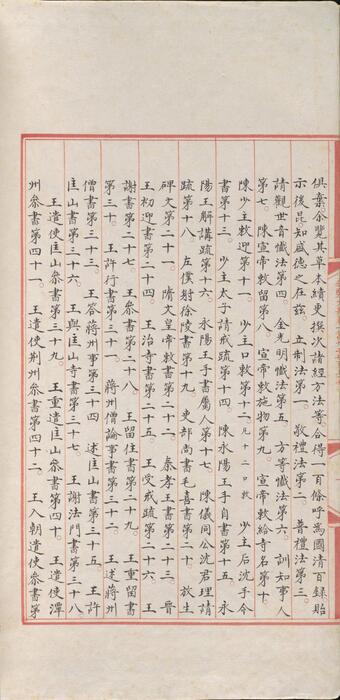 俱棄余覽其草本續更撰次諸經方法等合得一百條呼為國清百錄貽
示後昆知盛德之在茲 立制法第一 敬禮法第二 普禮法第三
請觀世音懺法第四 金光明懺法第五 方等懺法第六 訓知事人
第七 陳宣帝敕留第八 宣帝敕施物第九 宣帝敕給寺名第十
陳少主敕迎第十一 少主口敕第十二凡十二口敕 少主后沈手令
書第十三 少主太子請戒疏第十四 陳永陽王手自書第十五 永
陽王解講疏第十六 永陽王手書屬人第十七 陳儀同公沈君理請
疏第十八 左僕射徐陵書第十九 吏部尚書毛喜書第二十 放生
碑文第二十一 隋文皇帝敕書第二十二 秦孝王書第二十三 晉
王初迎書第二十四 王治寺書第二十五 王受戒疏第二十六 王
謝書第二十七 王參書第二十八 王留住書第二十九 王重留書
第三十 王許行書第三十一 蔣州僧論事書第三十二 王述蔣州
僧書第三十三 王答蔣州事第三十四 述匡山書第三十五 王許
匡山書第三十六 王與匡山寺第三十七 王謝法門書第三十八
王遣使匡山參書第三十九 王重遣匡山參第四十 王遣使潭
州參書第四十一 王遣使荊州參書第四十二 王入朝遣使參書第